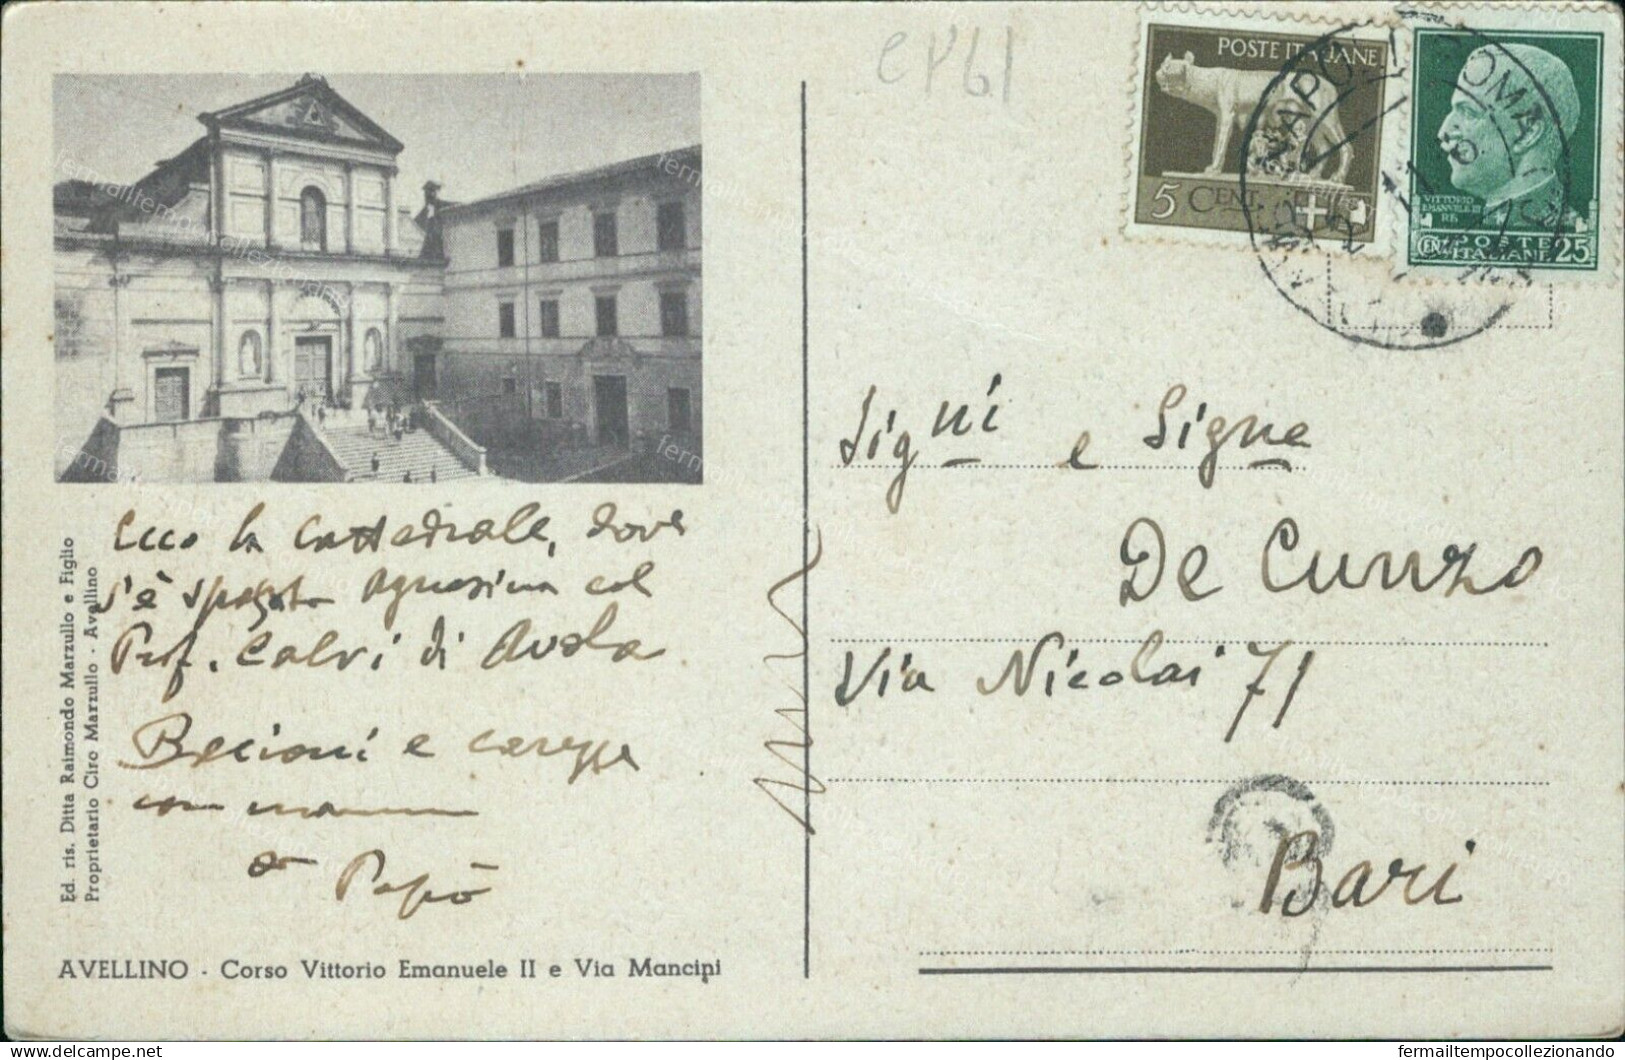 CP61
POSTE ITALIANE
5 CENT.
VITTORIO
EMANUELE III
RE
CENT POSTE
ITALIANE 25
NAPOLI ROMA
Ecco la Cattedrale, dove
s'è sposata col
Prof. Calvi di Avola
Becioni e carezze
con
Papà
Ed. ris. Ditta Raimondo Marzullo e Figlio
Proprietario Ciro Marzullo - Avellino
AVELLINO - Corso Vittorio Emanuele II e Via Mancini
Sigⁿⁱ e Signe
De Cunzo
Via Nicolai 71
Bari
fermailtempocollezionando
delcampe.net
fermailtempocollezionando